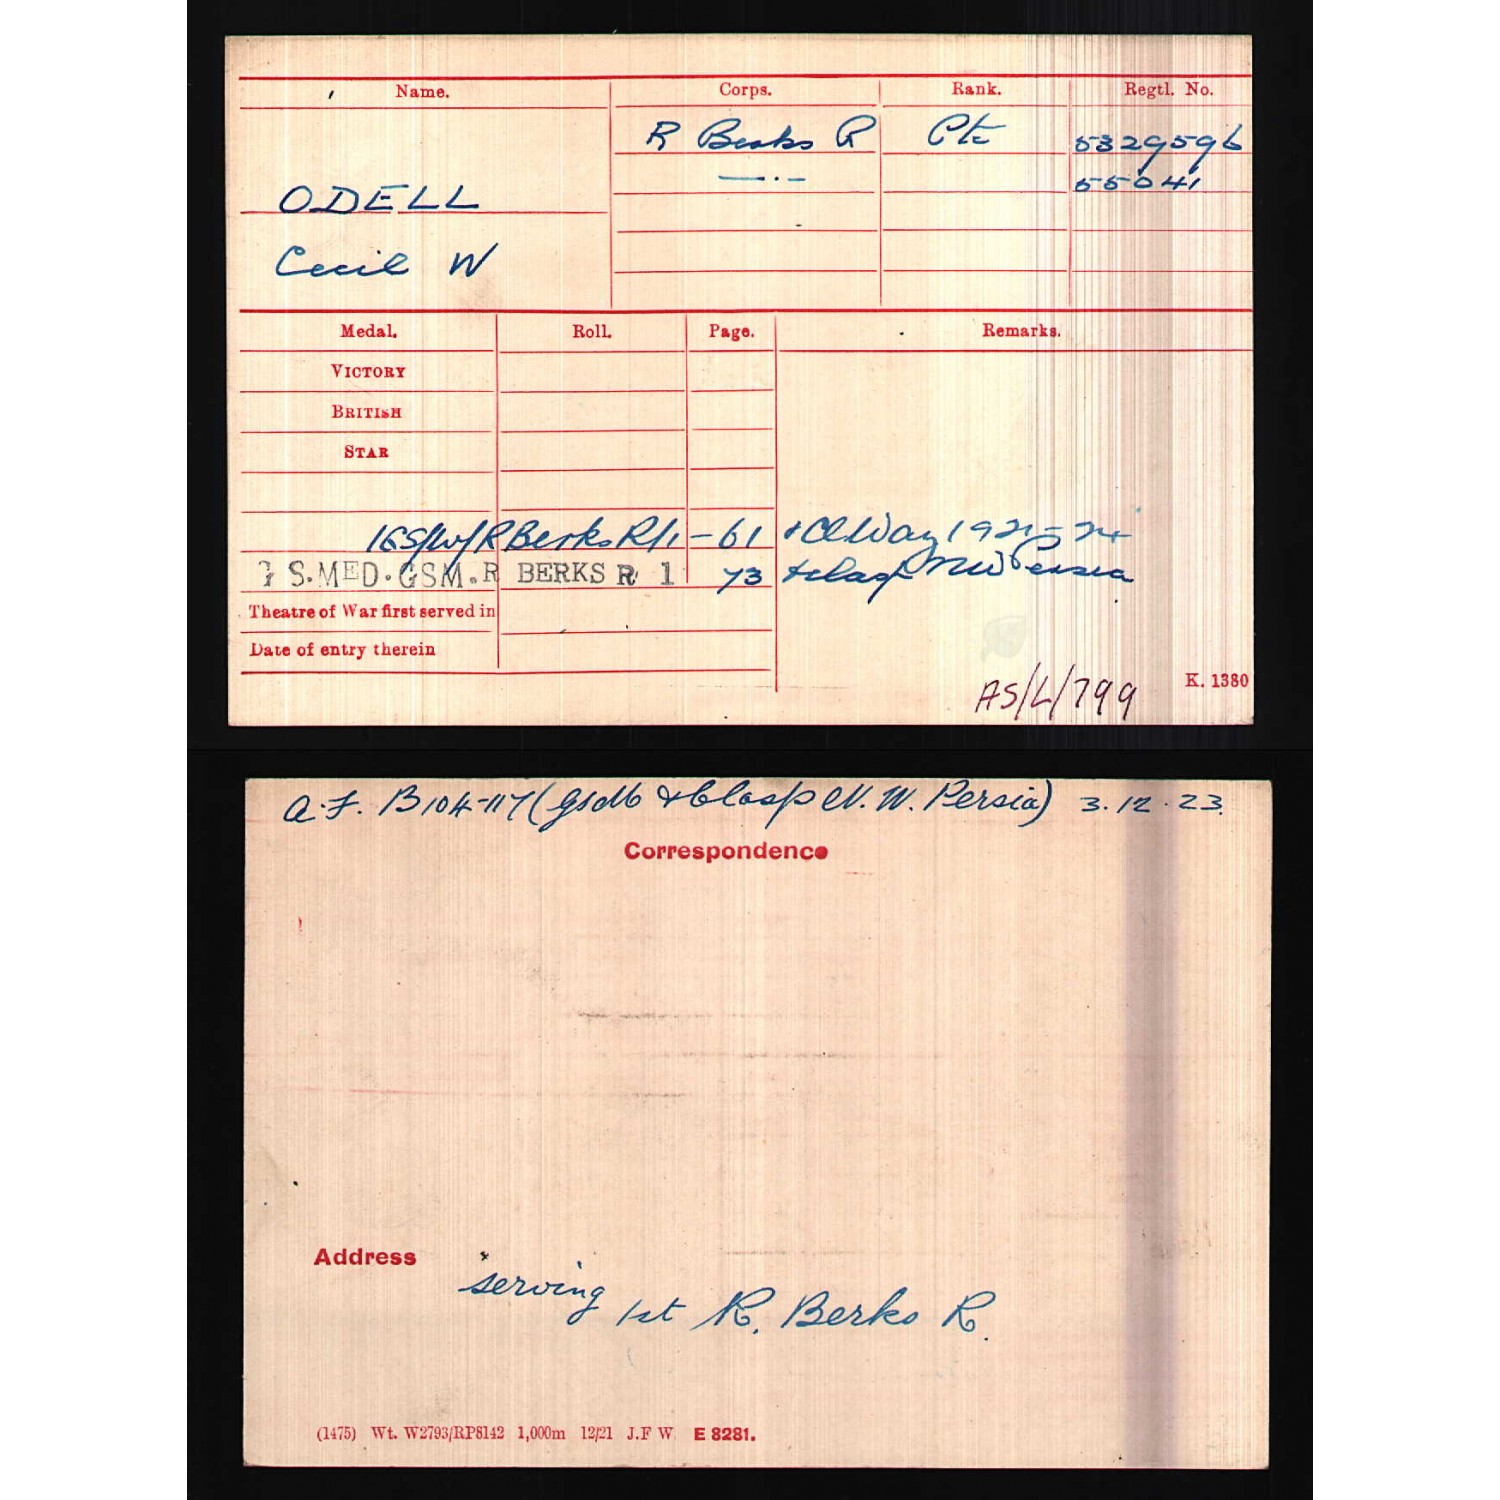 Name. Corps. Rank. Regtl. No.
R Berks R Pte 5329596
—·— 55041
ODELL
Cecil W
Medal. Roll. Page. Remarks.
VICTORY
BRITISH
STAR
IGS/W/R Berks R/1 - 61 + Cl Waz 1921-24
G S.MED.GSM.R BERKS R 1 73 + clasp NW Persia
Theatre of War first served in
Date of entry therein
AS/L/799
K. 1380
A.F. B104-117 (gsdb + Clasp N. W. Persia) 3.12.23.
Correspondence
Address
serving 1st R. Berks R.
(1475) Wt. W2793/RP8142 1,000m 12/21 J.F W. E 8281.